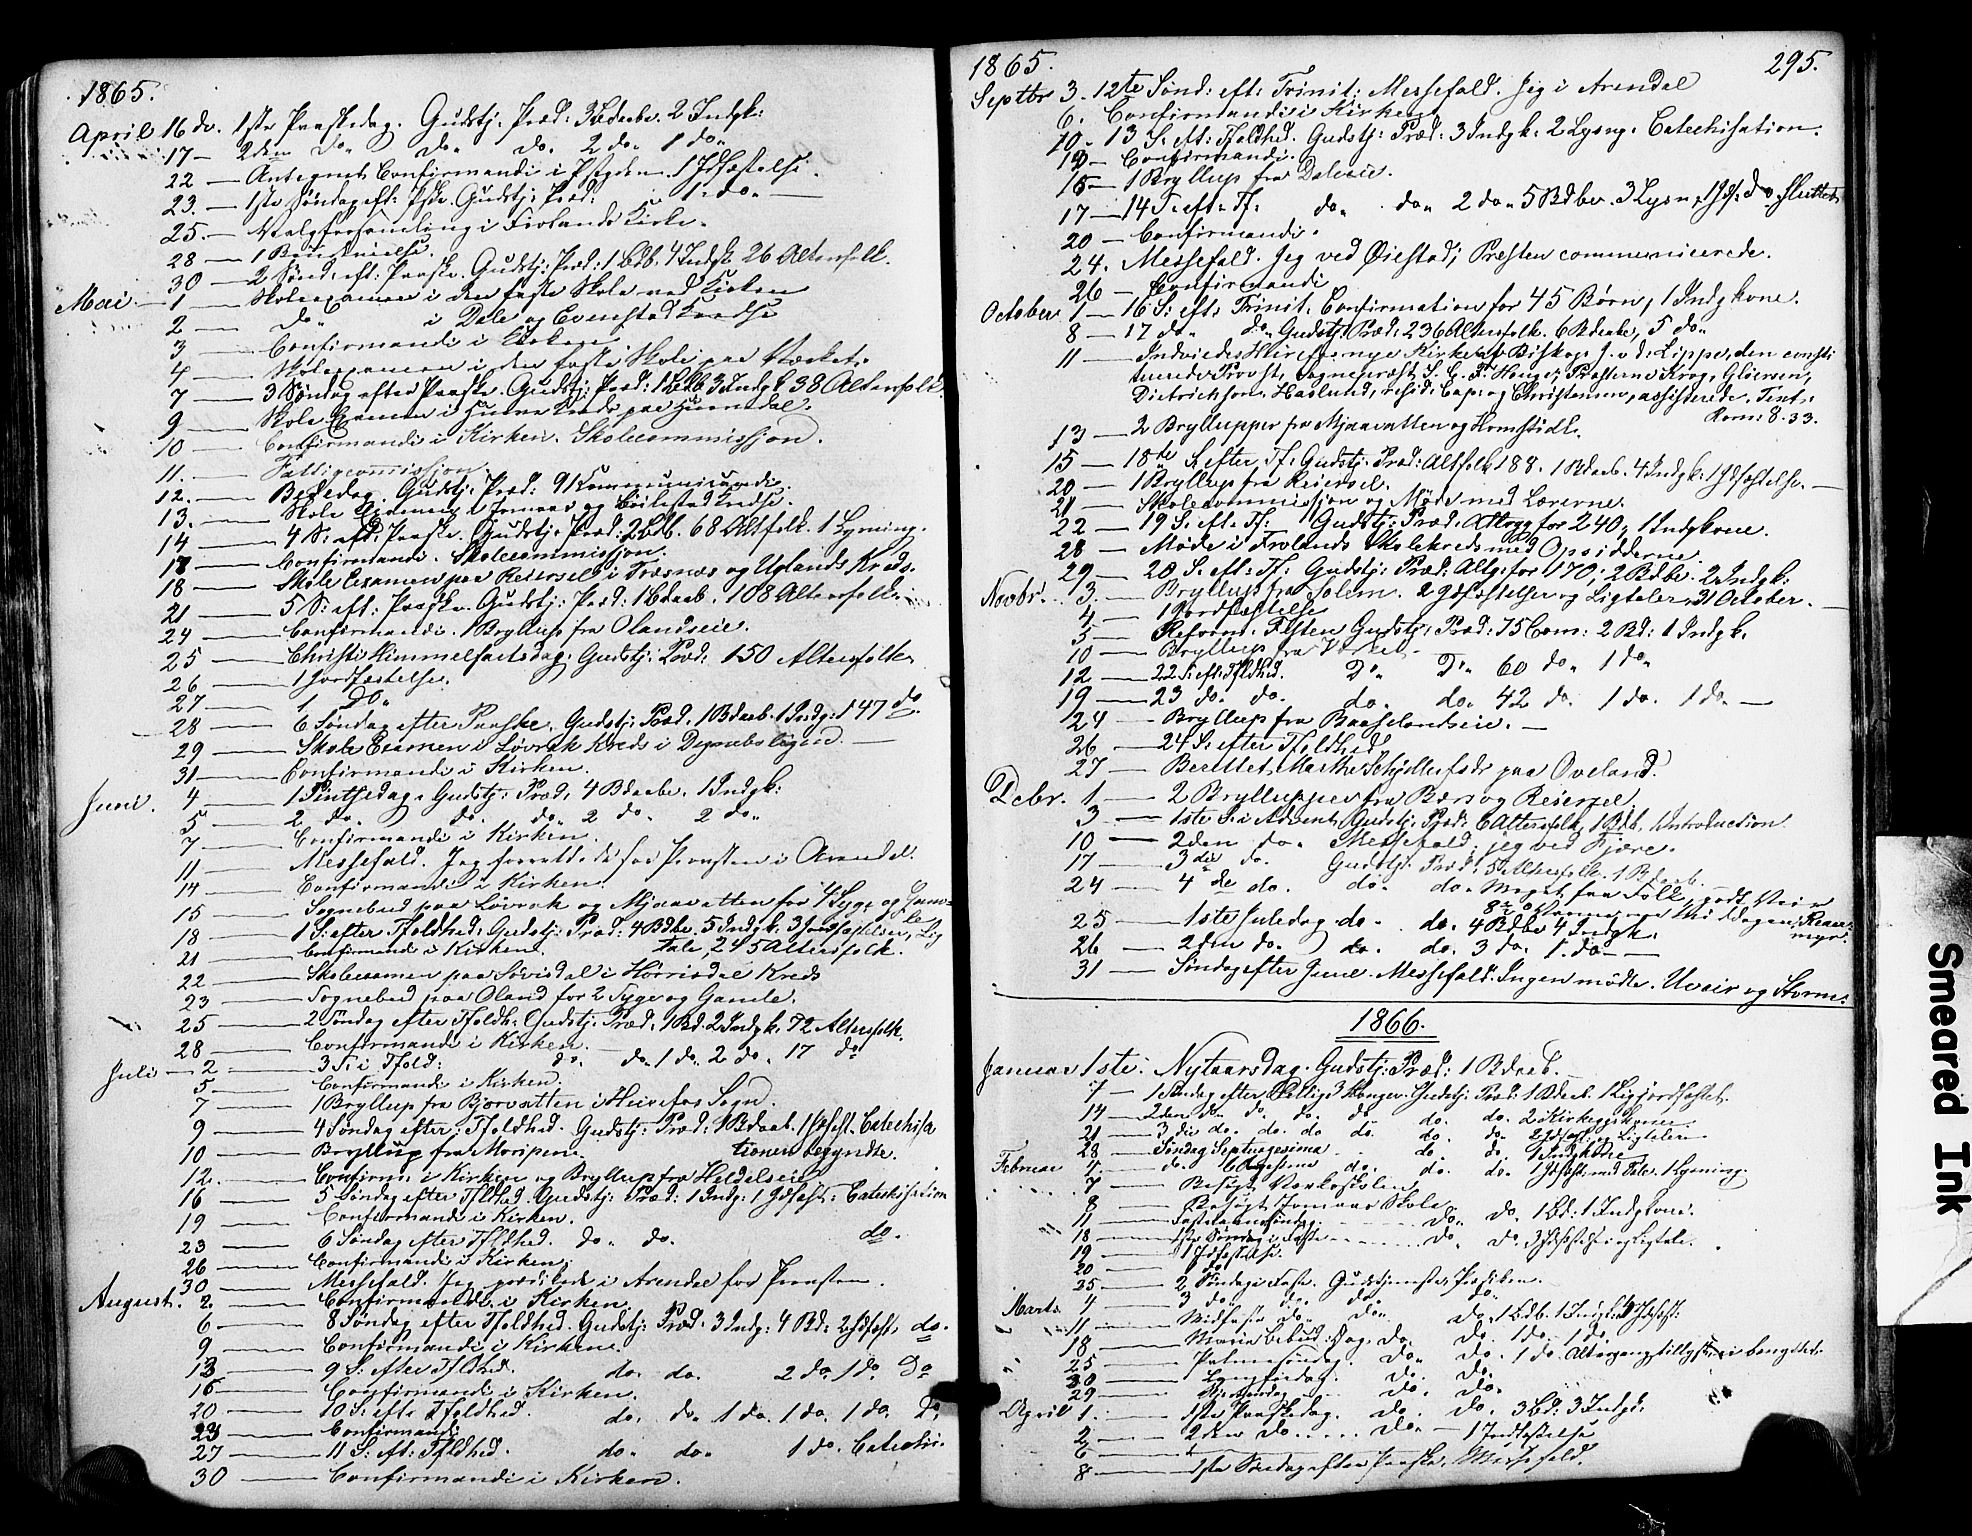 1865.
April 16 do. 1ste Paaskedag. Gudstj. Præd: 3 Bdaabe. 2 Indgk:
17 — 2den do. do. do. 2 do. 1 do.
22 — Antegnet Confirmandi i 1 Jdfæstelse.
23. — 1ste Søndag eft: Gudstj: Præd: 1 do. —
25. — Valgforsamling i Frolands Kirke.
28 — 1
30 — 2 Sønd. eft. Paaske. Gudstj: Præd: 1 Bdb. 4 Indgk 26 Altersfolk.
Mai — 1 Skoleexamen i den faste Skole ved Kirken
2 — do. i Dale og Evenstad Kredse
3 — Confirmandi i Kirken
4 — Skoleexamen i den faste Skole paa
7 — 3 Søndag efter Paaske. Gudstj: Præd: 1 Bdb 3 Indgk 38 Altersfolk.
9 — Skole Examen i Kreds paa
10 — Confirmandi i Kirken. Skolecommission.
11. — Fattigcommission.
12. — Bededag. Gudstj. Præd: 91 Communicerende.
13. — Skole Examen i Jomaas og Bøilestad Kredse.
14 — 4 S: eft: Paaske. Gudstj. Præd: 2 Bdb. 68 Altfolk. 1 Lysning.
17 — Confirmandi. Skolecommission.
18 — Skole Examen paa Reiersel i Træsnæs og Uglands Kreds.
21 — 5 S: eft: Paaske. Gudstj: Præd: 1 Bdaab. 108 Altersfolk.
24 — Confirmandi. 1 Bryllup fra Olandseie.
25 — Christi Himmelfartsdag. Gudstj: Præd: 150 Altersfolk.
26 — 1 Jordfæstelse.
27 — 1 Do.
28 — 6 Søndag efter Paaske. Gudstj: Præd. 1 Bdaab. 1 Indg: 147 do.
29 — Skole Examen i Løvrak Kreds i
31 — Confirmandi i Kirken.
Juni. 4 — 1 Pintsedag. Gudstj: Præd. 4 Bdaabe. 1 Indgk:
5 — 2 do. do. do. 2 do. 2 do.
7 — Confirmandi i Kirken.
11 — Messefald. Jeg forrettede for Provsten i Arendal.
14 — Confirmandi i Kirken.
15 — Sognebud paa Løvrak og Mjaavatten for 4 Syge og Gamle
18 — 1 S: efter Tfoldhed. Gudstj: Præd: 4 Bdbe. 5 Indgk: 3 Jordfæstelser, Lig
tale, 245 Altersfolk.
21 — Confirmandi i Kirken.
22 — Skoleexamen paa i Kreds
23 — Sognebud paa Oland for 2 Syge og Gamle.
25 — 2 Søndag efter Tfoldh: Gudstj: Præd: 1 Bd. 2 Indgk. 72 Altersfolk.
28 — Confirmandi i Kirken.
Juli — 2 — 3 S: i Tfold: do. do. 1 do. 2 do. 17 do
5 — Confirmandi i Kirken.
7 — 1 Bryllup fra Bjorvatten i Herefos Sogn.
9 — 4 Søndag efter Tfoldhed. Gudstj: Præd: 1 Bdaab. 1 Jdfæst. Catechisa
tionen begyndte.
10 — Bryllup fra
12. — Confirm: i Kirken og Bryllup fra
16 — 5 Søndag efter Tfldhed. Gudstj: Præd: 1 Indg: 1 Jdfæst: Catechisation
19 — Confirmandi i Kirken.
23 — 6 Søndag efter Tfldhed. do. do. do.
26 — Confirmandi i Kirken.
30 — Messefald. Jeg prædikede i Arendal for Provsten.
August. 2 — Confirmandi i Kirken.
6 — 8 Søndag efter Tfoldhed. Gudstj: Præd. 3 Indg: 4 Bd: 2 Jdfæst. do.
9 — Confirmandi i Kirken.
13 — 9 S: efter Tfldhed. do. do. 2 do. 1 do. Do
16 — Confirmandi i Kirken.
20 — 10 S: eft: Tfoldhed. do. do. 1 do. 1 do. 1 do. Do
23 — Confirmandi
27 — 11 S: eft: Tfldhed. do. do. 1 do. Catechi.
30 — Confirmandi i Kirken.
1865. 295.
Septbr 3. 12te Sønd: eft: Trinit: Messefald. Jeg i Arendal
6. Confirmandi i Kirken
10 — 13 S. eft: Tfoldhed. Gudstj: Præd: 3 Indgk. 2 Lysng. Catechisation.
13 — Confirmandi.
15 — 1 Bryllup fra Daleeie.
17 — 14 S: eft: Tf: do. do. 2 do. 5 Bdbe. 3 Lysn, 1 Jdf: do. sluttet
20 — Confirmandi.
24. Messefald. Jeg ved Øiestad; Presten communicerede.
26 — Confirmandi
October 1 — 16 S: eft: Trinit. Confirmation for 45 Børn, 1 Indgkone.
8 — 17 do. do. Gudstj: Præd: 236 Altersfolk. 6 Bdaabe, 5 do.
11 — Indviedes nye Kirke af Biskop J. v. d. Lippe, den consti
tuerede Provst, Sognepræst S. C. F. Hauge, Præsterne Krog, Gløersen,
Dietrichson, Haslund, resid: Cap: og Christensen, assisterede. Text:
Rom: 8. 33.
13 — 2 Brylluper fra Mjaavatten og
15 — 18de S. efter Tf: Gudstj. Præd: Altfolk 188. 1 Bdaab. 4 Indgk: 1 Jdfæstelse. —
20 — 1 Bryllup fra Reiersel.
21 — Skolecommission og Møde med Lærerne.
22 — 19 S. eft. Tf: Gudstj: Præd: Altgg for 240, 1 Indgkone.
28 — Møde i Frolands Skolekreds med Opsidderne.
29 — 20 S. eft: Tf: Gudstj: Præd: Altg: for 170; 2 Bdbe. 2 Indgk:
Novbr. 3. — Bryllup fra Solem. 2 Jdfæstelser og Ligtaler, 31 October. —
4 — 1 Jordfæstelse
5 — Reform. Festen Gudstj. Præd: 75 Com: 2 Bd: 1 Indgk.
10 — Bryllup fra
12 — 22 S: eft: Tfldhed. Do. Do. 60 do. 1 do.
19 — 23 do. do. do. do. 42 do. 1 do. 1 do. —
24 — Bryllup fra Baaselandseie. —
26 — 24 S: efter Tfoldhed.
27 — Berettet Marthe paa Oveland.
Debr. 1 — 2 Brylluper fra og Reiersel.
3 — 1ste S: i Advent Gudstj: Præd: 6 Altersfolk, 1 Bdb. Introduction.
10 — 2den do. Messefald; jeg ved Fjære.
17 — 3die do. Gudstj. Præd: 5 Altersfolk. 1 Bdaab.
24 — 4de do. do. do. Meget Folk, godt Veir
25 — 1ste Juledag. do. do. 4 Bdbe 4 Indgk.
26 — 2den do. do. do. 3 do. 1. do. —
31 — Søndag efter Juul. Messefald. Ingen mødte. Uveir og Storm.
1866.
Januar 1ste. Nytaarsdag. Gudstj. Præd: 1 Bdaab.
7 — 1 Søndag efter Hellig 3 Konger. Gudstj: Præd: 1 Bdaab. 1 Lig jordfæstet.
14 — 2den do. do. do. do do. do. 2 Kirkegskoner.
21 — 3die do. do. do. do. do. do 2 Jdfæst: og Ligtaler
28 — Søndag Septuagesima do. do. 1 Indgkone
Februar 4 — do. Sexagesima do. do. do. 1 Jdfæst. med Tale. 1 Lysning.
7 — Besøgt Skolen
8 — Besøgt Jomaas Skole
11 — Fastelavnssøndag. do. do. 1 Bd. 1 Indgkone.
18 — 1ste Søndag i Faste do. do. 3 Jdfæstelser og Ligtale.
19 — 1 Jdfæstelse.
20 — do
25 — 2 Søndag i Faste. Gudstjeneste, Prædiken.
Marts 4 — 3 do. do. do. do.
11 — Midfaste do. do. do. 1 Bdb. 1 Indgk: Jdfæst:
18 — Maria Bebud: Dag. do. do. 1 do. 1 do.
25 — Palmesøndag. do. do. 1 do. Altergang
30 — Langfredag. do. do.
29 — Skjertorsdag do. do.
April 1. — 1ste Paaskedag. do. do. 3 Bd: 3 Indgk:
2 — 2den do. do. — 1 Jordfæstelse
6 —
8 — 1ste Søndag efter Paaske. Messefald.
Smeared Ink